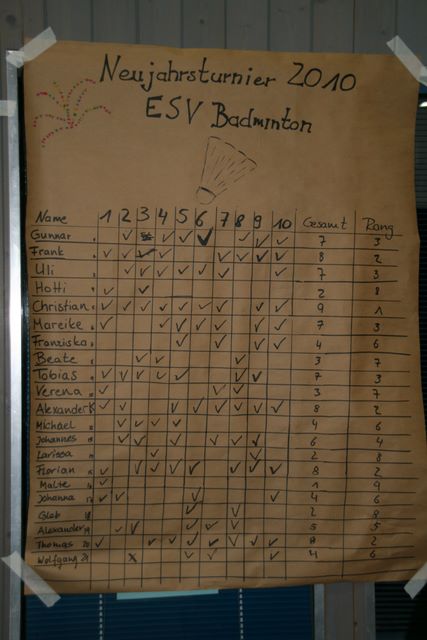 Neujahrsturnier 2010
ESV Badminton
Name 1 2 3 4 5 6 7 8 9 10 Gesamt Rang
Gunnar 7 3
Frank 8 2
Uli 7 3
Hotti 2 8
Christian 9 1
Mareike 7 3
Franziska 4 6
Beate 3 7
Tobias 7 3
Verena 3 7
Alexander 8 2
Michael 4 6
Johannes 6 4
Larissa 2 8
Florian 8 2
Malte 1 9
Johanna 17 4 6
18 2 8
Alexander 19 5 5
Thomas 20 8 2
Wolfgang 21 4 6